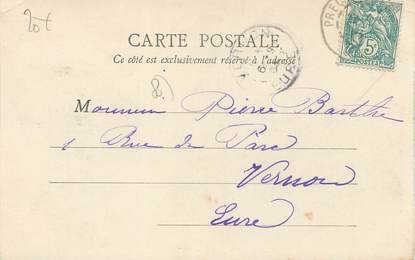 20f
CARTE POSTALE
Ce côté est exclusivement réservé à l'adresse
Monsieur Pierre Barthe
1 Rue du Parc
Vernon
Eure
5c
POSTES